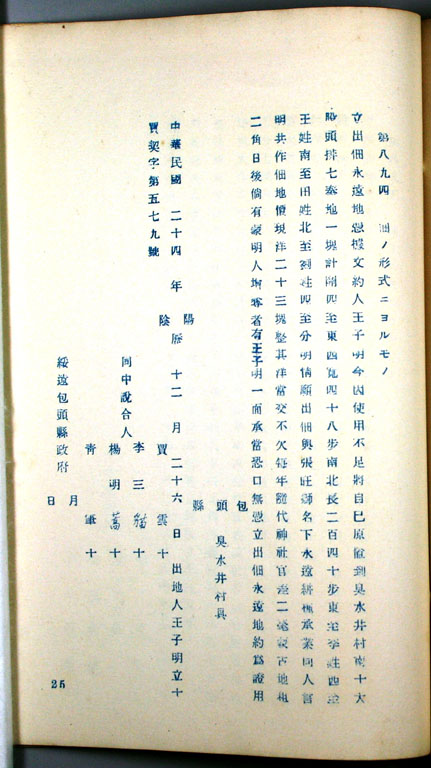 第八九四 佃ノ形式ニヨルモノ
立出佃永遠地憑據文約人王子明今因使用不足將自己原置到臭水井村南十大
股頭持七泰地一塊計開四至東西寬四十八步南北長二百四十步東至李姓西至
王姓南至田姓北至劉姓四至分明情願出佃與張旺獅名下永遠耕種承業同人言
明共作佃地價現洋二十三塊整其洋當交不欠每年隨代神社官差二毫蒙古地租
二角日後倘有蒙明人爭奪者有王子明一面承當恐口無憑立出佃永遠地約為證用
包頭縣臭水井村具
中華民國 二十四年 陽陰 歷 十二月 二十六日 出地人王子明立十
買契字第五七九號
同中說合人
賈雲十
李三貓十
楊明蒿十
青軍十
綏遠包頭縣政府 月 日
25